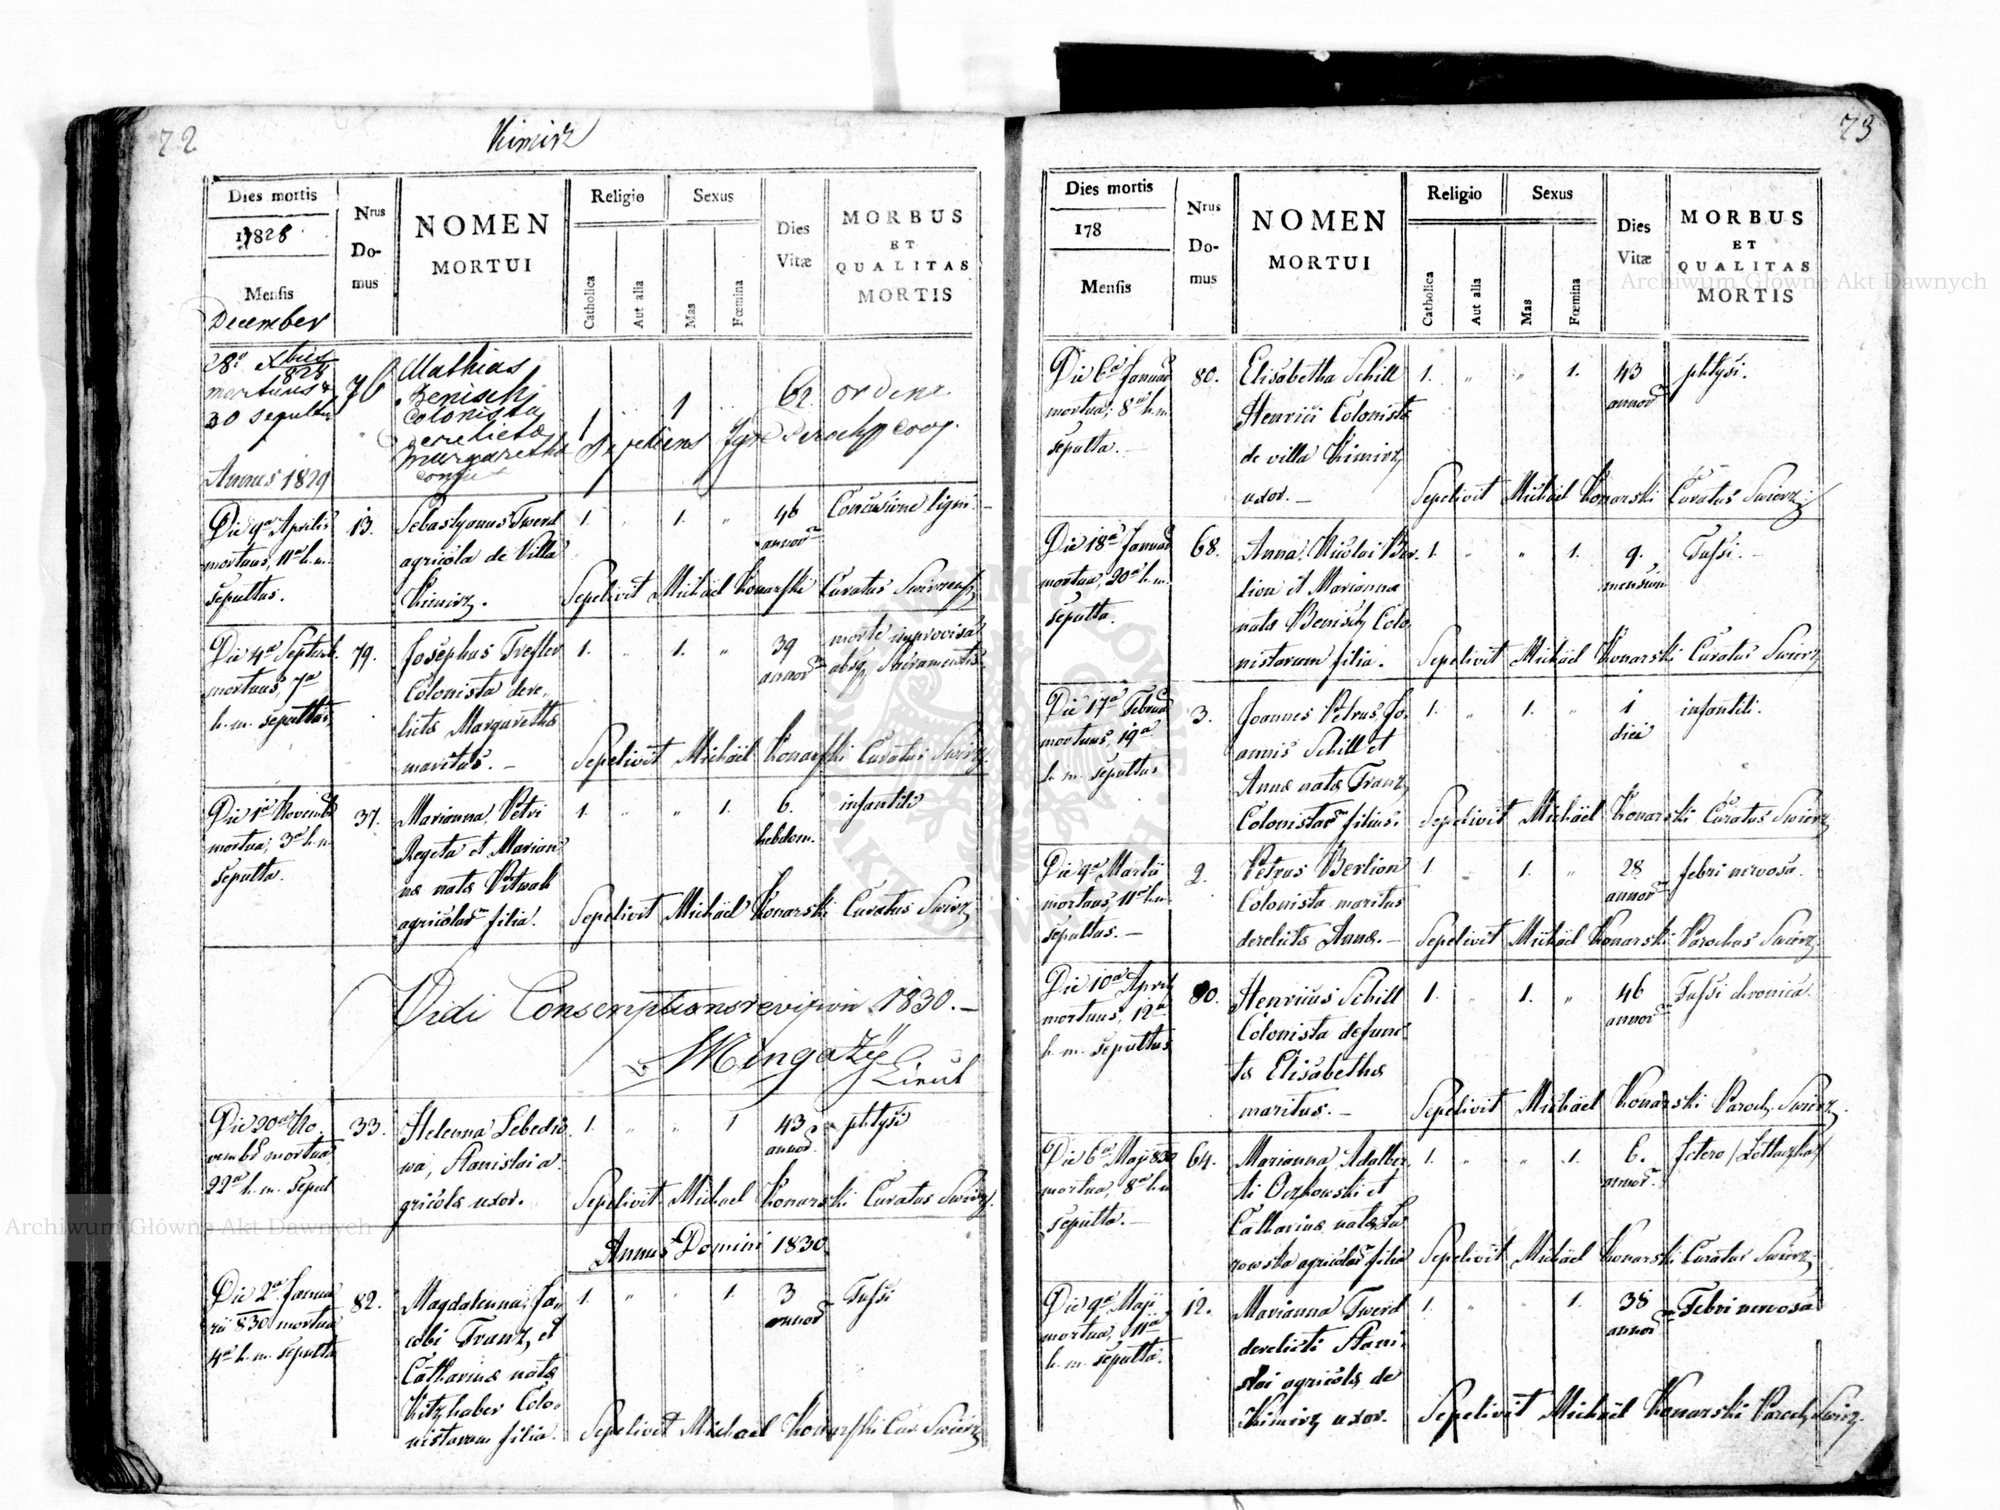 22
Kimirz
Dies mortis
17828
Mensis
December
Nrus
Do-
mus
NOMEN
MORTUI
Religio
Catholica
Aut alia
Sexus
Mas
Fœmina
Dies
Vitæ
MORBUS
ET
QUALITAS
MORTIS
28a
828
mortuus &
30 sepultus
76
Mathias
Benisch
Colonista
derelicta
Margaretha
1
1
62
ordena.
coop.
Annus 1829
Die 9a Aprilis
mortuus, 11a h. m.
sepultus.
13.
Sebastyanus Twerd
agricola de Villa
Kimirz.
1. " 1. "
46
annor
Concusione ligni
Sepelivit Michäel Konarski Curatus Swirzensis
Die 4a Septemb.
mortuus, 7a
h. m. sepultus,
79.
Josephus Trefler
Colonista dere„
lictæ Margarethæ
maritus. –
1. " 1. "
39
annor
morte improvisa
absq Sacramentis.
Sepelivit Michäel Konarski Curatus Swirz.
Die 1a Novembr
mortua, 3a h. m.
sepulta.
37.
Marianna, Petri
Regeta et Marian
næ natæ Pitwak
agricolar filia.
1. " " 1.
6.
hebdom.
infantili
Sepelivit Michäel Konarski Curatus Swirz
Vidi Conscriptionsrevision 1830. –
Lieut
Die 20a No„
vembr mortua
22a h. m. sepult
33.
Helenna Lebedio
wa, Stanislai a„
gricolæ uxor.
1. " " 1
43
annor.
phtysi
Sepelivit Michael Konarski Curatus Swirz.
Annus Domini 1830
Die 2a Janua
rii 830 mortua
4a h. m. sepulta
82.
Magdalenna, Ja„
cobi Franz, et
Catharinæ natæ
Kitzhaber Colo„
nistarum filia.
1. " " 1.
3
annor
Tussi
Sepelivit Michael Konarski Cur. Swirz
23
Dies mortis
178
Mensis
Nrus
Do-
mus
NOMEN
MORTUI
Religio
Catholica
Aut alia
Sexus
Mas
Fœmina
Dies
Vitæ
MORBUS
ET
QUALITAS
MORTIS
Die 6a Januar
mortua, 8a h. m.
sepulta. –
80.
Elisabetha Schill
Henrici Colonistæ
de villa Kimirz,
uxor. –
1. " " 1.
43
annor
phtysi.
Sepelivit Michäel Konarski Curatus Swirz
Die 18a Januar
mortua, 20a h. m.
sepulta.
68.
Anna, Nicolai Ber„
lion et Marianna
nata Benisch Colo„
nistarum filia.
1. " " 1.
9.
mensium
Tussi. –
Sepelivit Michäel Konarski Curatus Swirz
Die 17a Februar
mortuus, 19a
h. m. sepultus
3.
Joannes Petrus, Jo„
annis Schill et
Annæ natæ Franz,
Colonistar filius.
1. " 1. "
1
diei
infantili.
Sepelivit Michäel Konarski Curatus Swirz
Die 9a Martii
mortuus, 11a h. m.
sepultus. –
2.
Petrus Berlion
Colonista maritus
derelictæ Annæ. –
1. " 1. "
28
annor
febri nervosa.
Sepelivit Michäel Konarski Parochus Swirz
Die 10a April
mortuus, 12a
h. m. sepultus
80.
Henricus Schill
Colonista defunc„
tæ Elisabethæ
maritus. –
1. " 1. "
46
annor
Tussi chronica.
Sepelivit Michäel Konarski Paroch. Swirz
Die 6a Maji 830
mortua, 8a h. m
sepulta. –
64.
Marianna, Adalber„
ti Oczkowski et
Catharinæ natæ Lu
rowska agricolar filia
1. " " 1.
6.
annor.
Sepelivit Michäel Konarski Curatus Swirz
Die 9a Maji
mortua, 11a
h. m. sepulta.
12.
Marianna Twerd
derelicti Stani„
slai agricolæ de
Kimirz uxor.
1. " " 1.
38
annor
Febri nervosa
Sepelivit Michäel Konarski Paroch. Swirz.
Archiwum Główne Akt Dawnych
Archiwum Główne Akt Dawnych